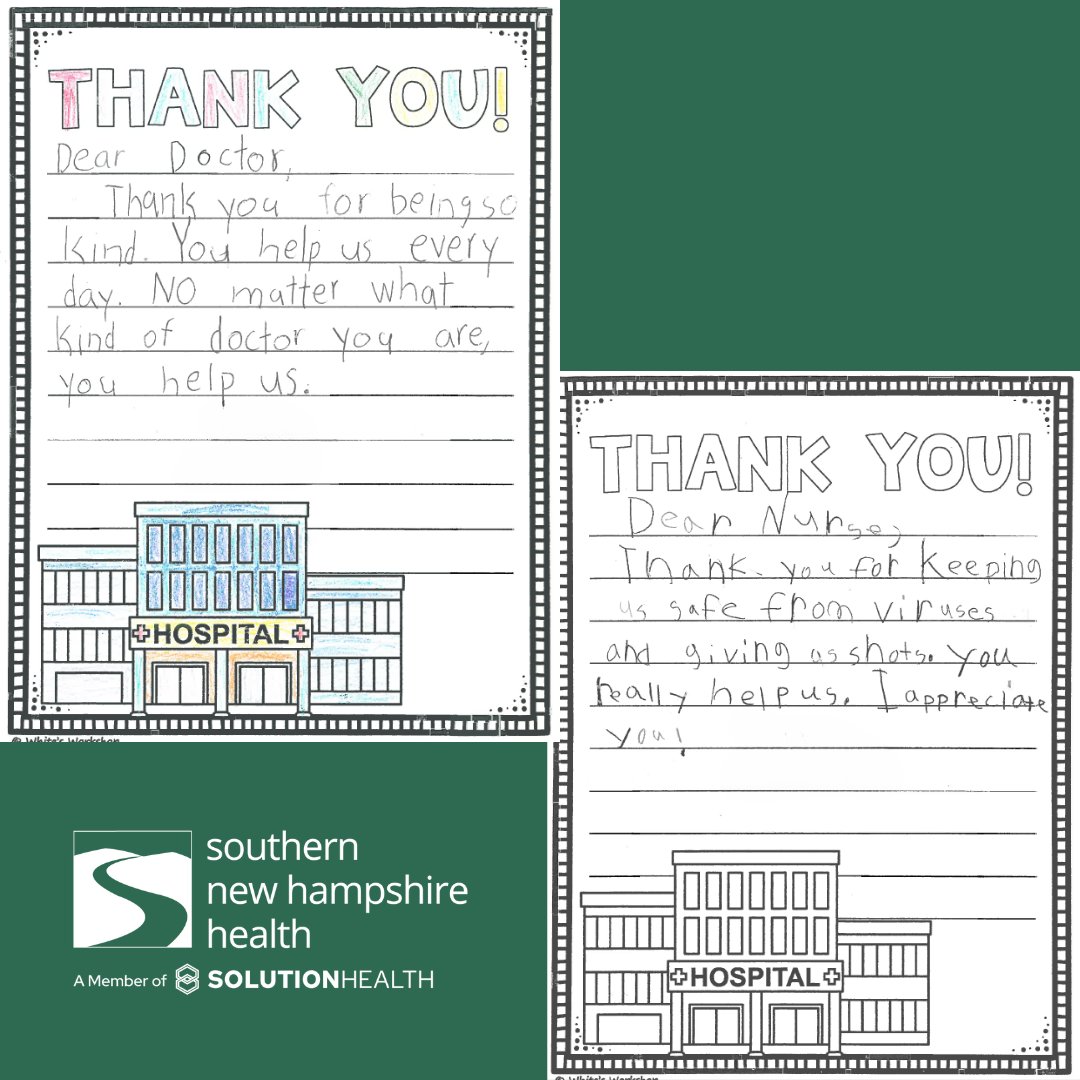 THANK YOU!
Dear Doctor,
Thank you for being so
kind. You help us every
day. NO matter what
kind of doctor you are,
you help us.
+HOSPITAL+
© White's Workshop
THANK YOU!
Dear Nurse,
Thank you for keeping
us safe from viruses
and giving us shots. you
really help us. I appreciate
you!
+HOSPITAL+
© White's Workshop
southern
new hampshire
health
A Member of SOLUTIONHEALTH